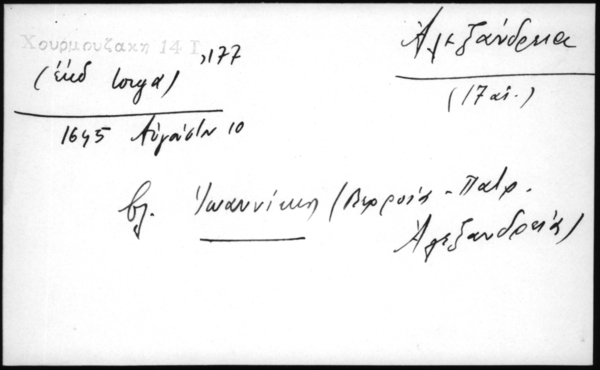 Χουρμουζάκη 14 Ι, 177
Ἀλεξάνδρεια
(ἐκδ Iorga)
(17 αἰ.)
1645 Αὐγούστου 10
βλ. Ἰωαννίκιος (Βερροίας - Πατρ.
Ἀλεξανδρείας)